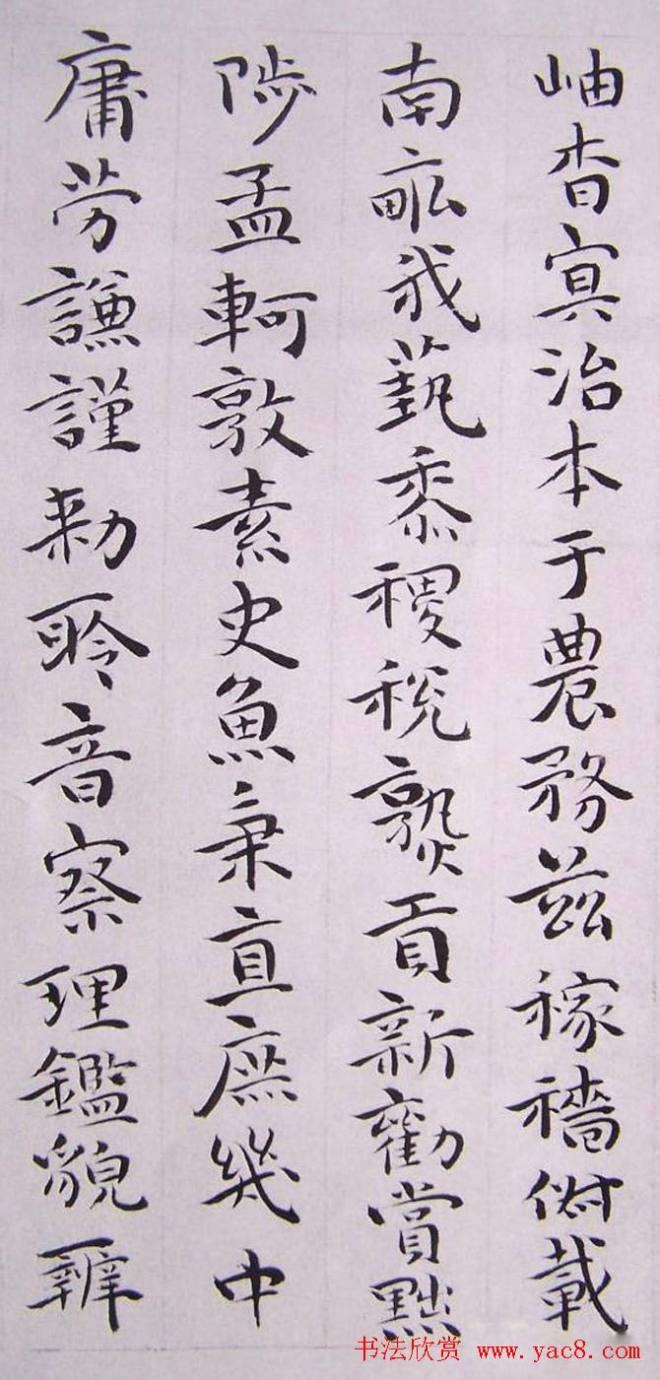 岫杳冥治本于農務茲稼穡俶載
南畝我蓺黍稷稅熟貢新勸賞黜
陟孟軻敦素史魚秉直庶幾中
庸勞謙謹勑聆音察理鑑貌辨
书法欣赏 www.yac8.com